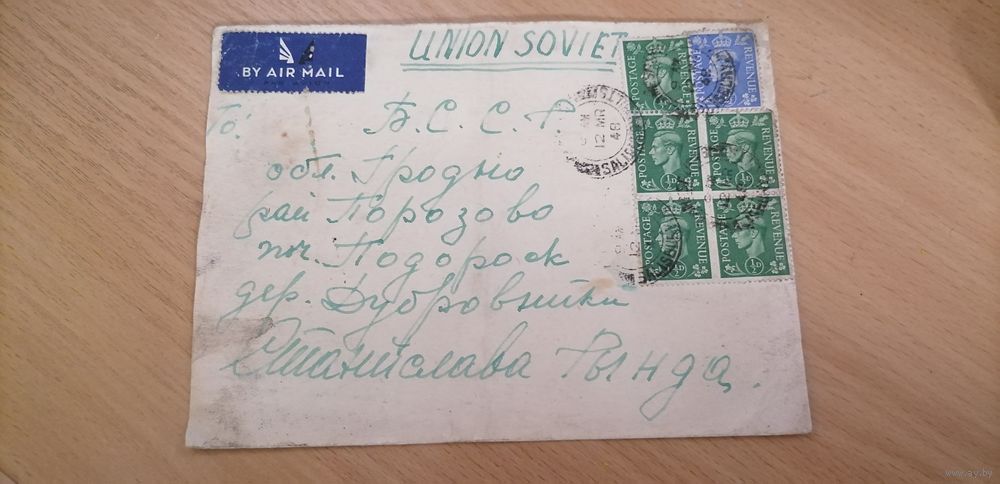 BY AIR MAIL
UNION SOVIET
To:
Б. С. С. Р.
обл. Гродно
рай Порозово
поч. Подороск
дер. Дубровники
Станислава Рында.
POSTAGE REVENUE
POSTAGE REVENUE
POSTAGE ½D REVENUE
POSTAGE ½D REVENUE
POSTAGE ½D REVENUE
POSTAGE ½D REVENUE
12 MR
48
www.ay.by